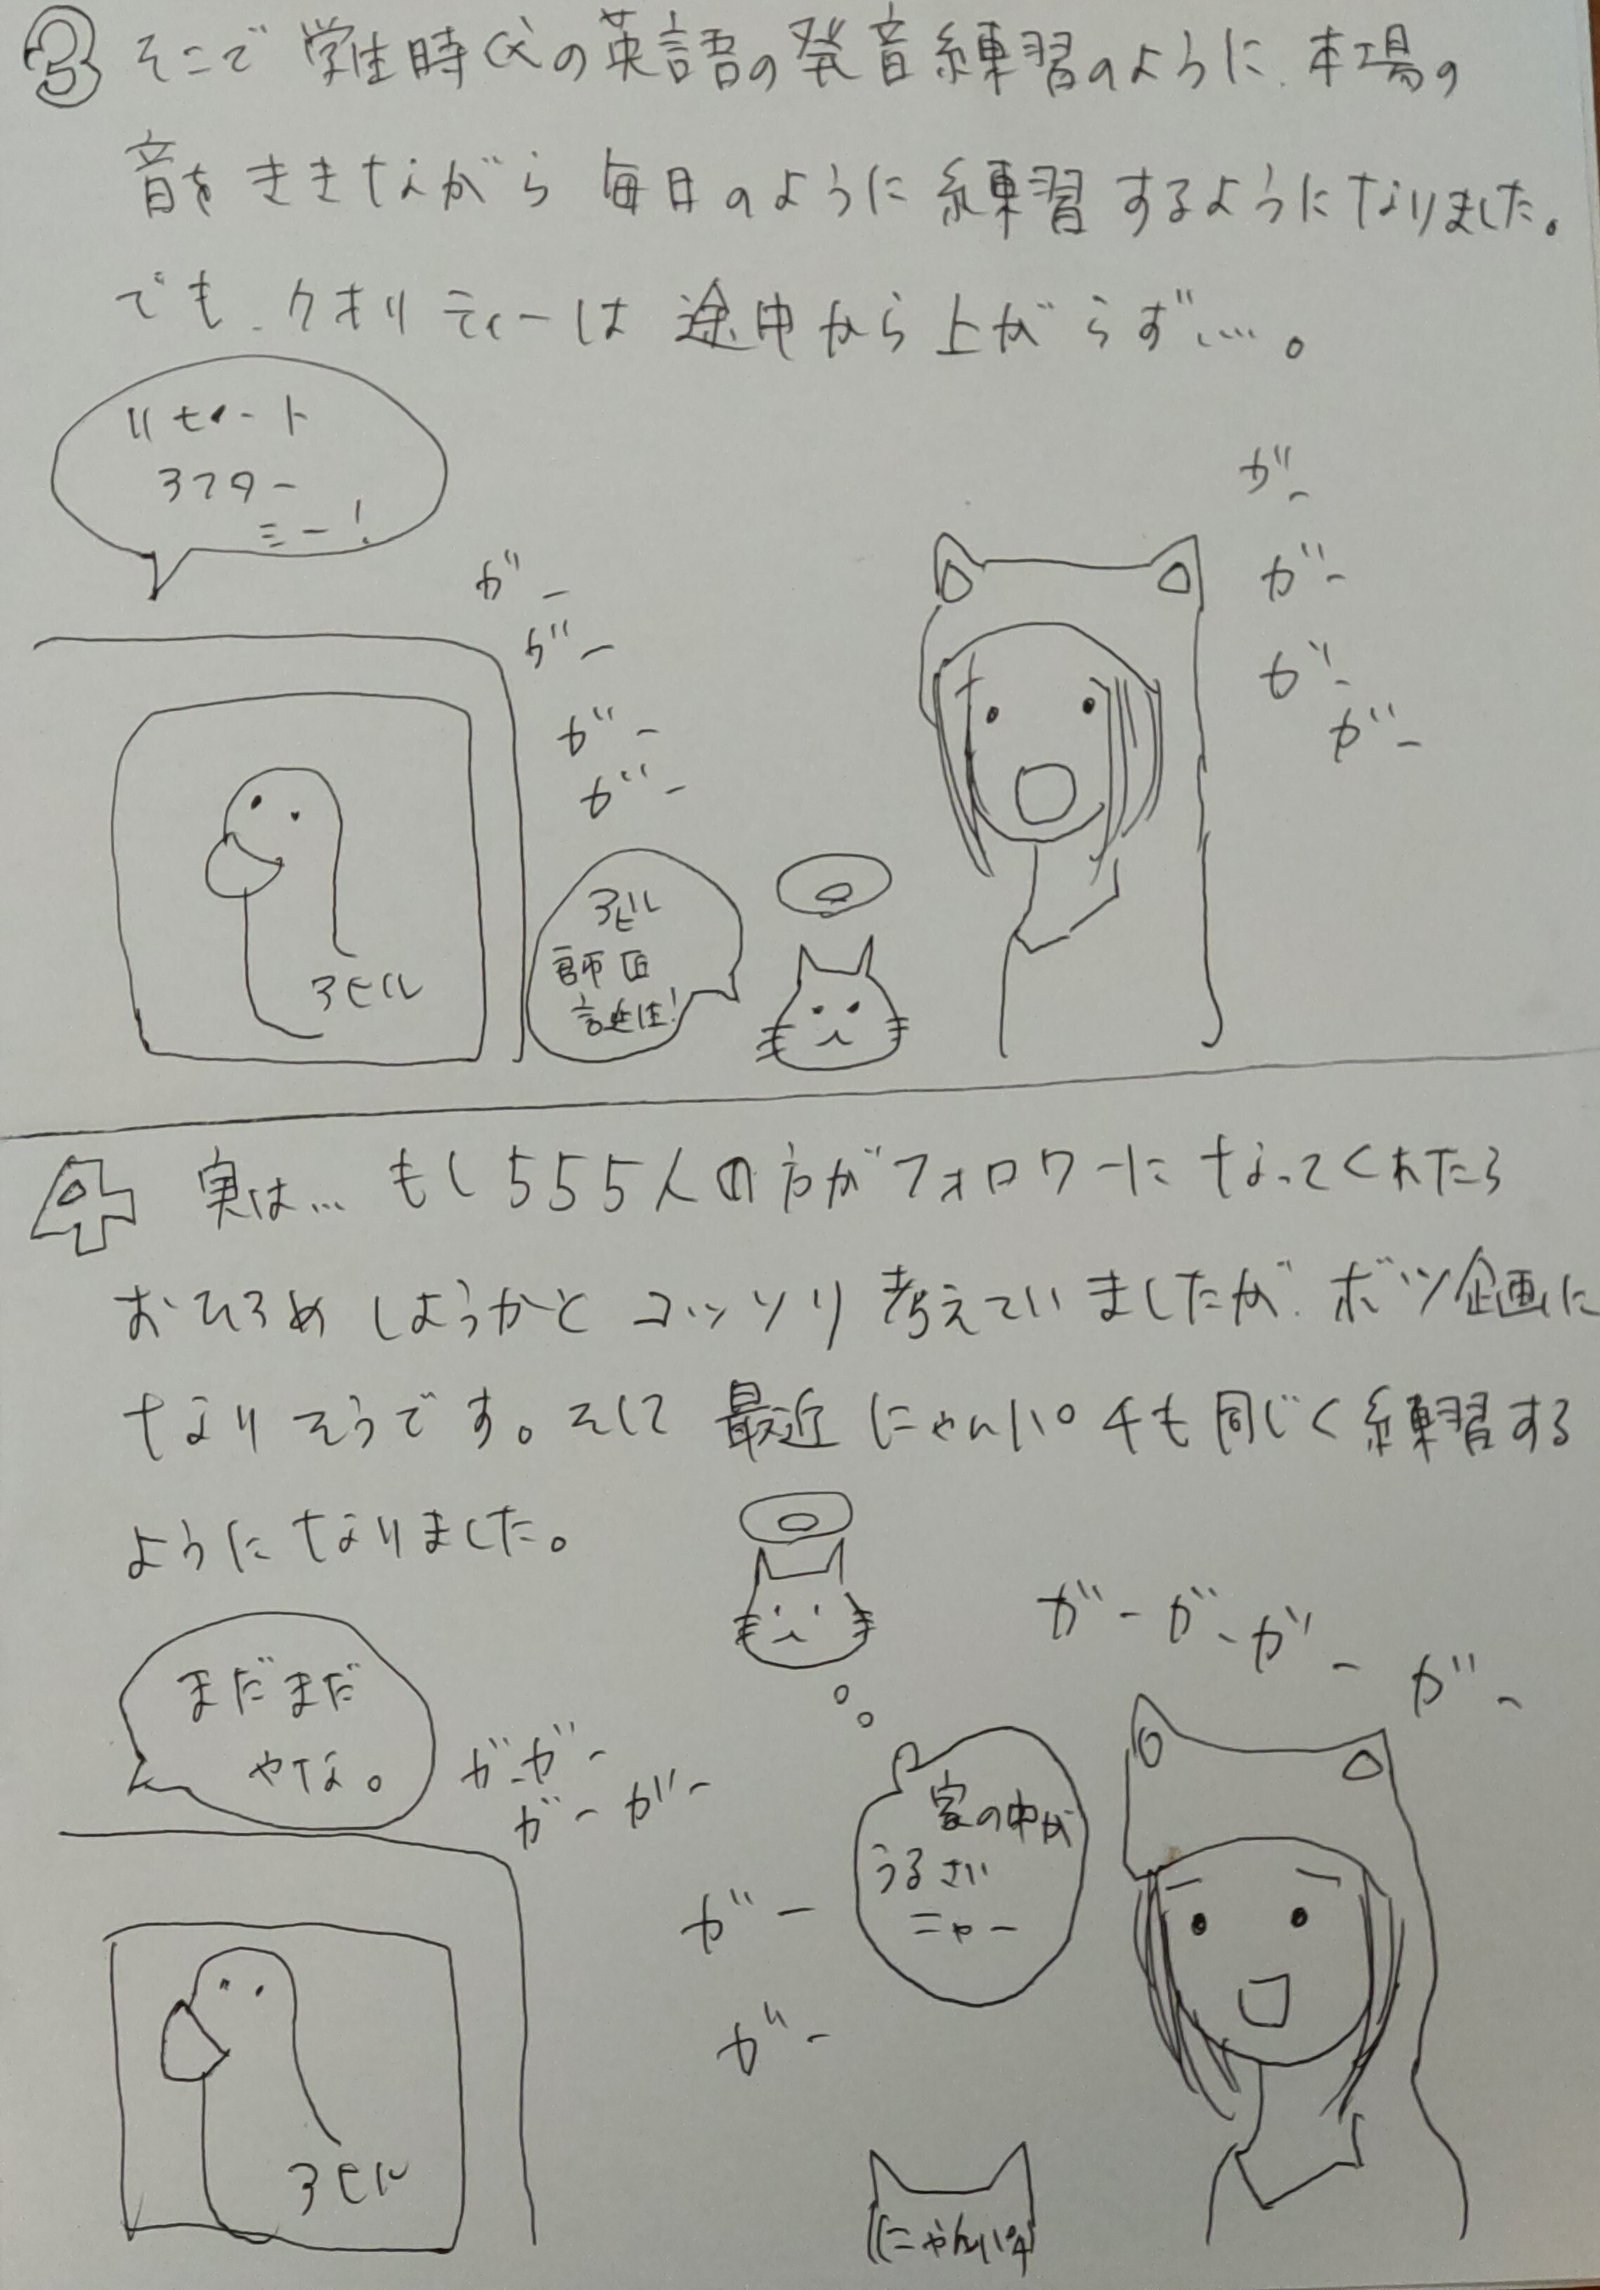 3 そこで 学生時代の英語の発音練習のように、本場の
音をききながら 毎日のように練習するようになりました。
でも、クオリティーは途中から上がらず…。
リピート
アフター
ミー！
ガー
ガー
ガー
ガー
ガー
ガー
ガー
ガー
アヒル
師匠
誕生！
アヒル
4 実は… もし555人の方がフォロワーになってくれたら
おひろめしようかと コッソリ考えていましたが、ボツ企画に
なりそうです。そして 最近 にゃんパチも同じく練習する
ようになりました。
まだまだ
やな。
ガーガー
ガーガー
ガーガーガーガー
ガー
ガー
家の中が
うるさい
ニャー
アヒル
にゃんパチ